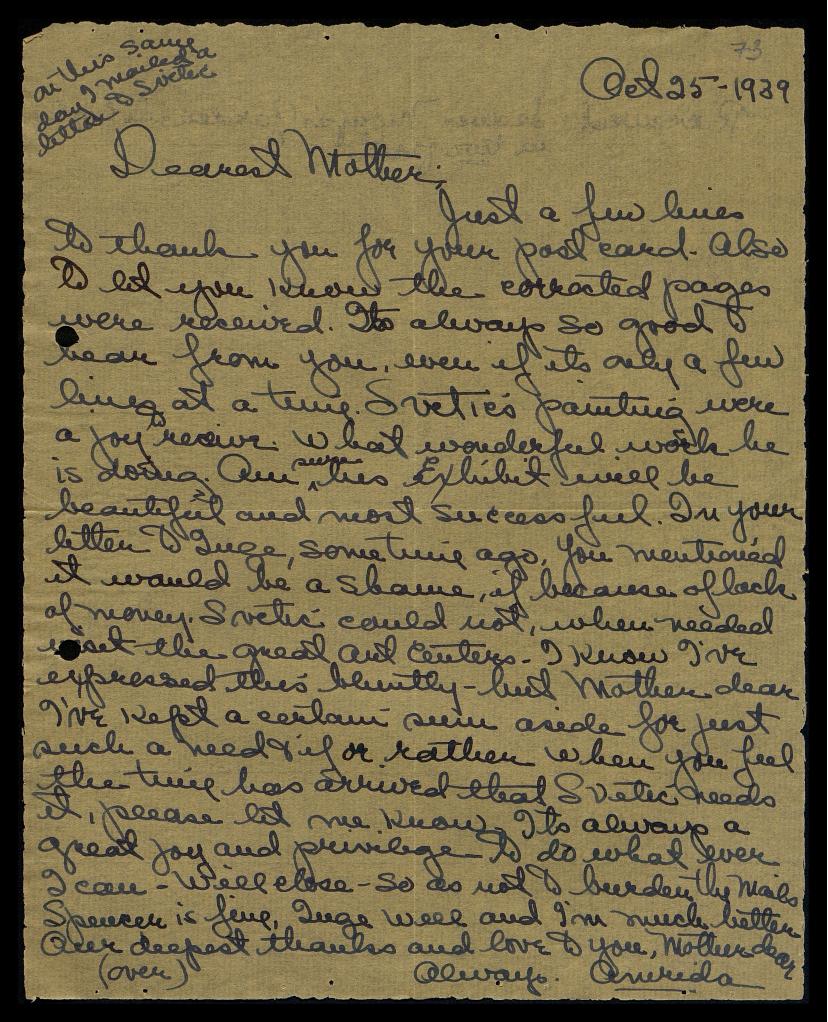 73
on this same
day I mailed a
letter to Svetic
Oct 25-1939
Dearest Mother,
Just a few lines
to thank you for your post card. Also
to let you know the corrected pages
were received. Its always so good to
hear from you, even if its only a few
lines at a time. Svetic's painting were
a joy to receive. What wonderful work he
is doing. Am sure his Exhibit will be
beautiful and most successful. In your
letter to Inge, sometime ago, you mentioned
it would be a shame, if because of lack
of money. Svetic could not, when needed
visit the great Art Centers - I know I've
expressed this bluntly - but Mother dear
I've kept a certain sum aside for just
such a need & if or rather when you feel
the time has arrived that Svetic needs
it, please let me know. Its always a
great joy and privilege to do what ever
I can - Will close - so as not to burden the Mails
Spencer is fine, Inge well and I'm much better
Our deepest thanks and love to you, Mother dear
(over) Always. Amrida